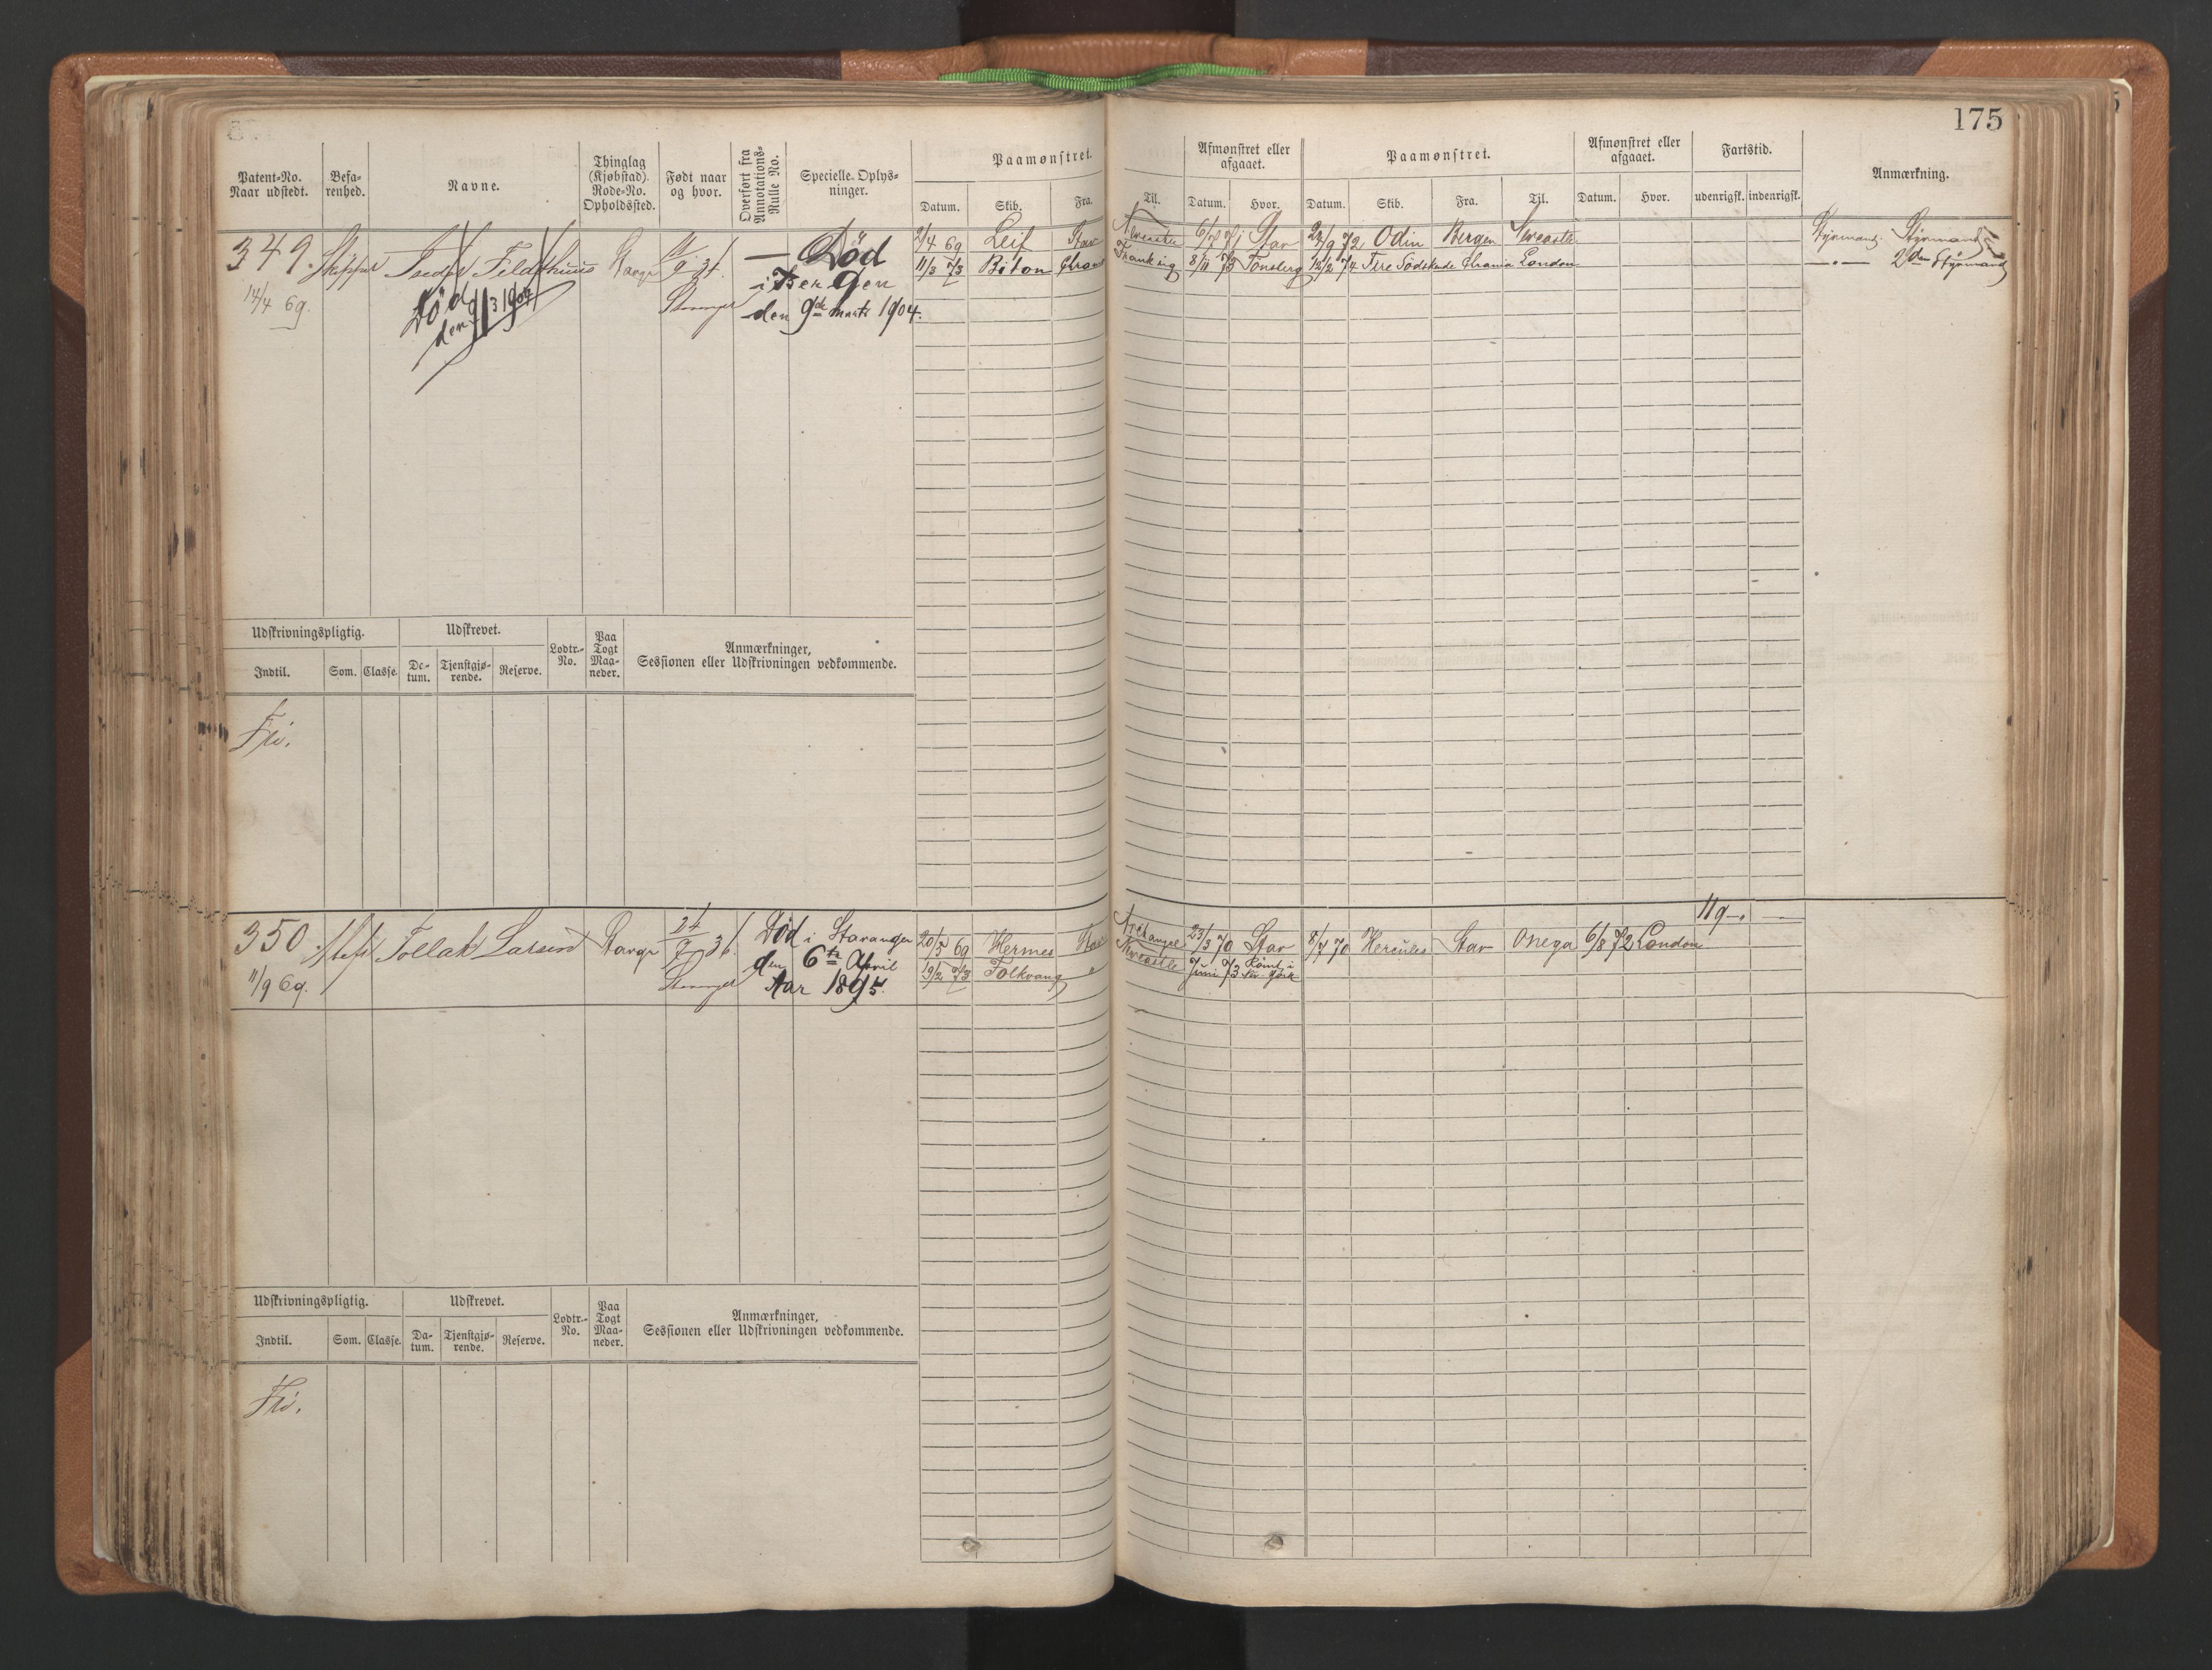 175
Patent-No. Naar udstedt.
Befarenhed.
Navne.
Thinglag (Kjøbstad). Rode-No. Opholdssted.
Født naar og hvor.
Overført fra Annotations-Rulle No.
Specielle Oplysninger.
Paamønstret.
Datum. Skib. Fra. Til.
Afmønstret eller afgaaet.
Datum. Hvor.
Paamønstret.
Datum. Skib. Fra. Til.
Afmønstret eller afgaaet.
Datum. Hvor.
Fartstid.
udenrigsk. indenrigsk.
Anmærkning.
349.
14/4 69.
Død
den 9/3 1904
Død
i Bergen
den 9de marts 1904.
2/4 69 Leif Stav 6/7 71 Stav 22/9 72 Odin Bergen Styrmand Styrmand
11/3 73 Chrania 8/11 73 Tønsberg 12/2 74 Fire Sødskende Chrania London 2den Styrmand
Udskrivningspligtig.
Indtil. Som. Classe.
Udskrevet.
Datum. Tjenstgjørende. Reserve.
Lodtr.-No.
Paa Togt Maaneder.
Anmærkninger,
Sessionen eller Udskrivningen vedkommende.
Fri.
350.
11/9 69.
Tollak Larsen
24/7 36
Død i Stavanger
den 6te April
Aar 1895.
20/5 69 Hermes Stav Archangel 23/3 70 Stav 8/4 70 Hercules Stav Onega 6/8 72 London
19/2 73 Folkvang " Newcastle Juni 73 Rømt i
119
Udskrivningspligtig.
Indtil. Som. Classe.
Udskrevet.
Datum. Tjenstgjørende. Reserve.
Lodtr.-No.
Paa Togt Maaneder.
Anmærkninger,
Sessionen eller Udskrivningen vedkommende.
Fri.